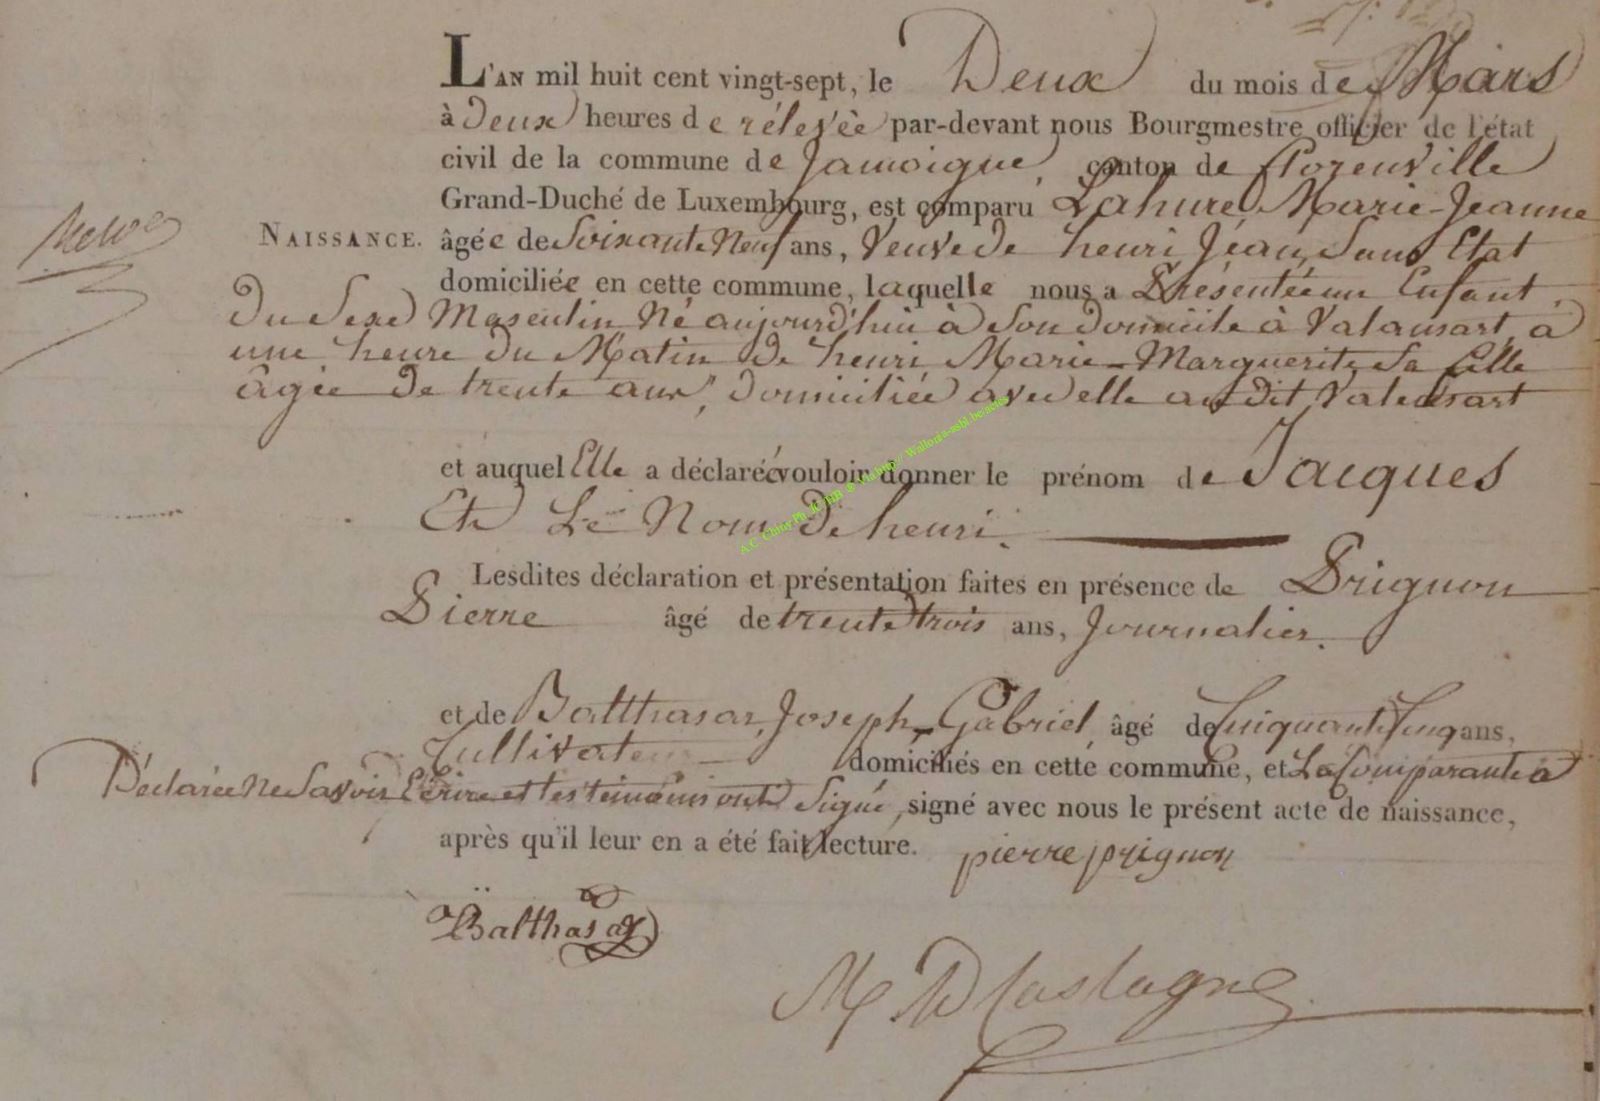 L'AN mil huit cent vingt-sept, le Deux du mois de Mars
à deux heures de rélevée par-devant nous Bourgmestre officier de l'état
civil de la commune de Jamoigne, canton de Florenville
Grand-Duché de Luxembourg, est comparu Lahure Marie-Jeanne
NAISSANCE. âgée de Soixante Neuf ans, Veuve de henri Jéan, Sans Etat
domiciliée en cette commune, laquelle nous a Présentée un Enfant
Du Sexe Masculin Né aujourd'hui à Son domicile à Valansart, à
une heure du Matin de henri Marie-Marguerite Sa fille
âgée de trente ans, domiciliée avec elle au dit Valansart
et auquel Elle a déclaré vouloir donner le prénom de Jacques
Et Le Nom de henri.
Lesdites déclaration et présentation faites en présence de Prignon
Pierre âgé de trente trois ans, Journalier.
et de Balthasar, Joseph-Gabriel, âgé de Cinquante Cinq ans,
Cultivateur domiciliés en cette commune, et La Comparante a
Déclarée Ne Savoir Ecrire et les témoins ont Signé, signé avec nous le présent acte de naissance,
après qu'il leur en a été fait lecture. pierre prignon
Balthasar